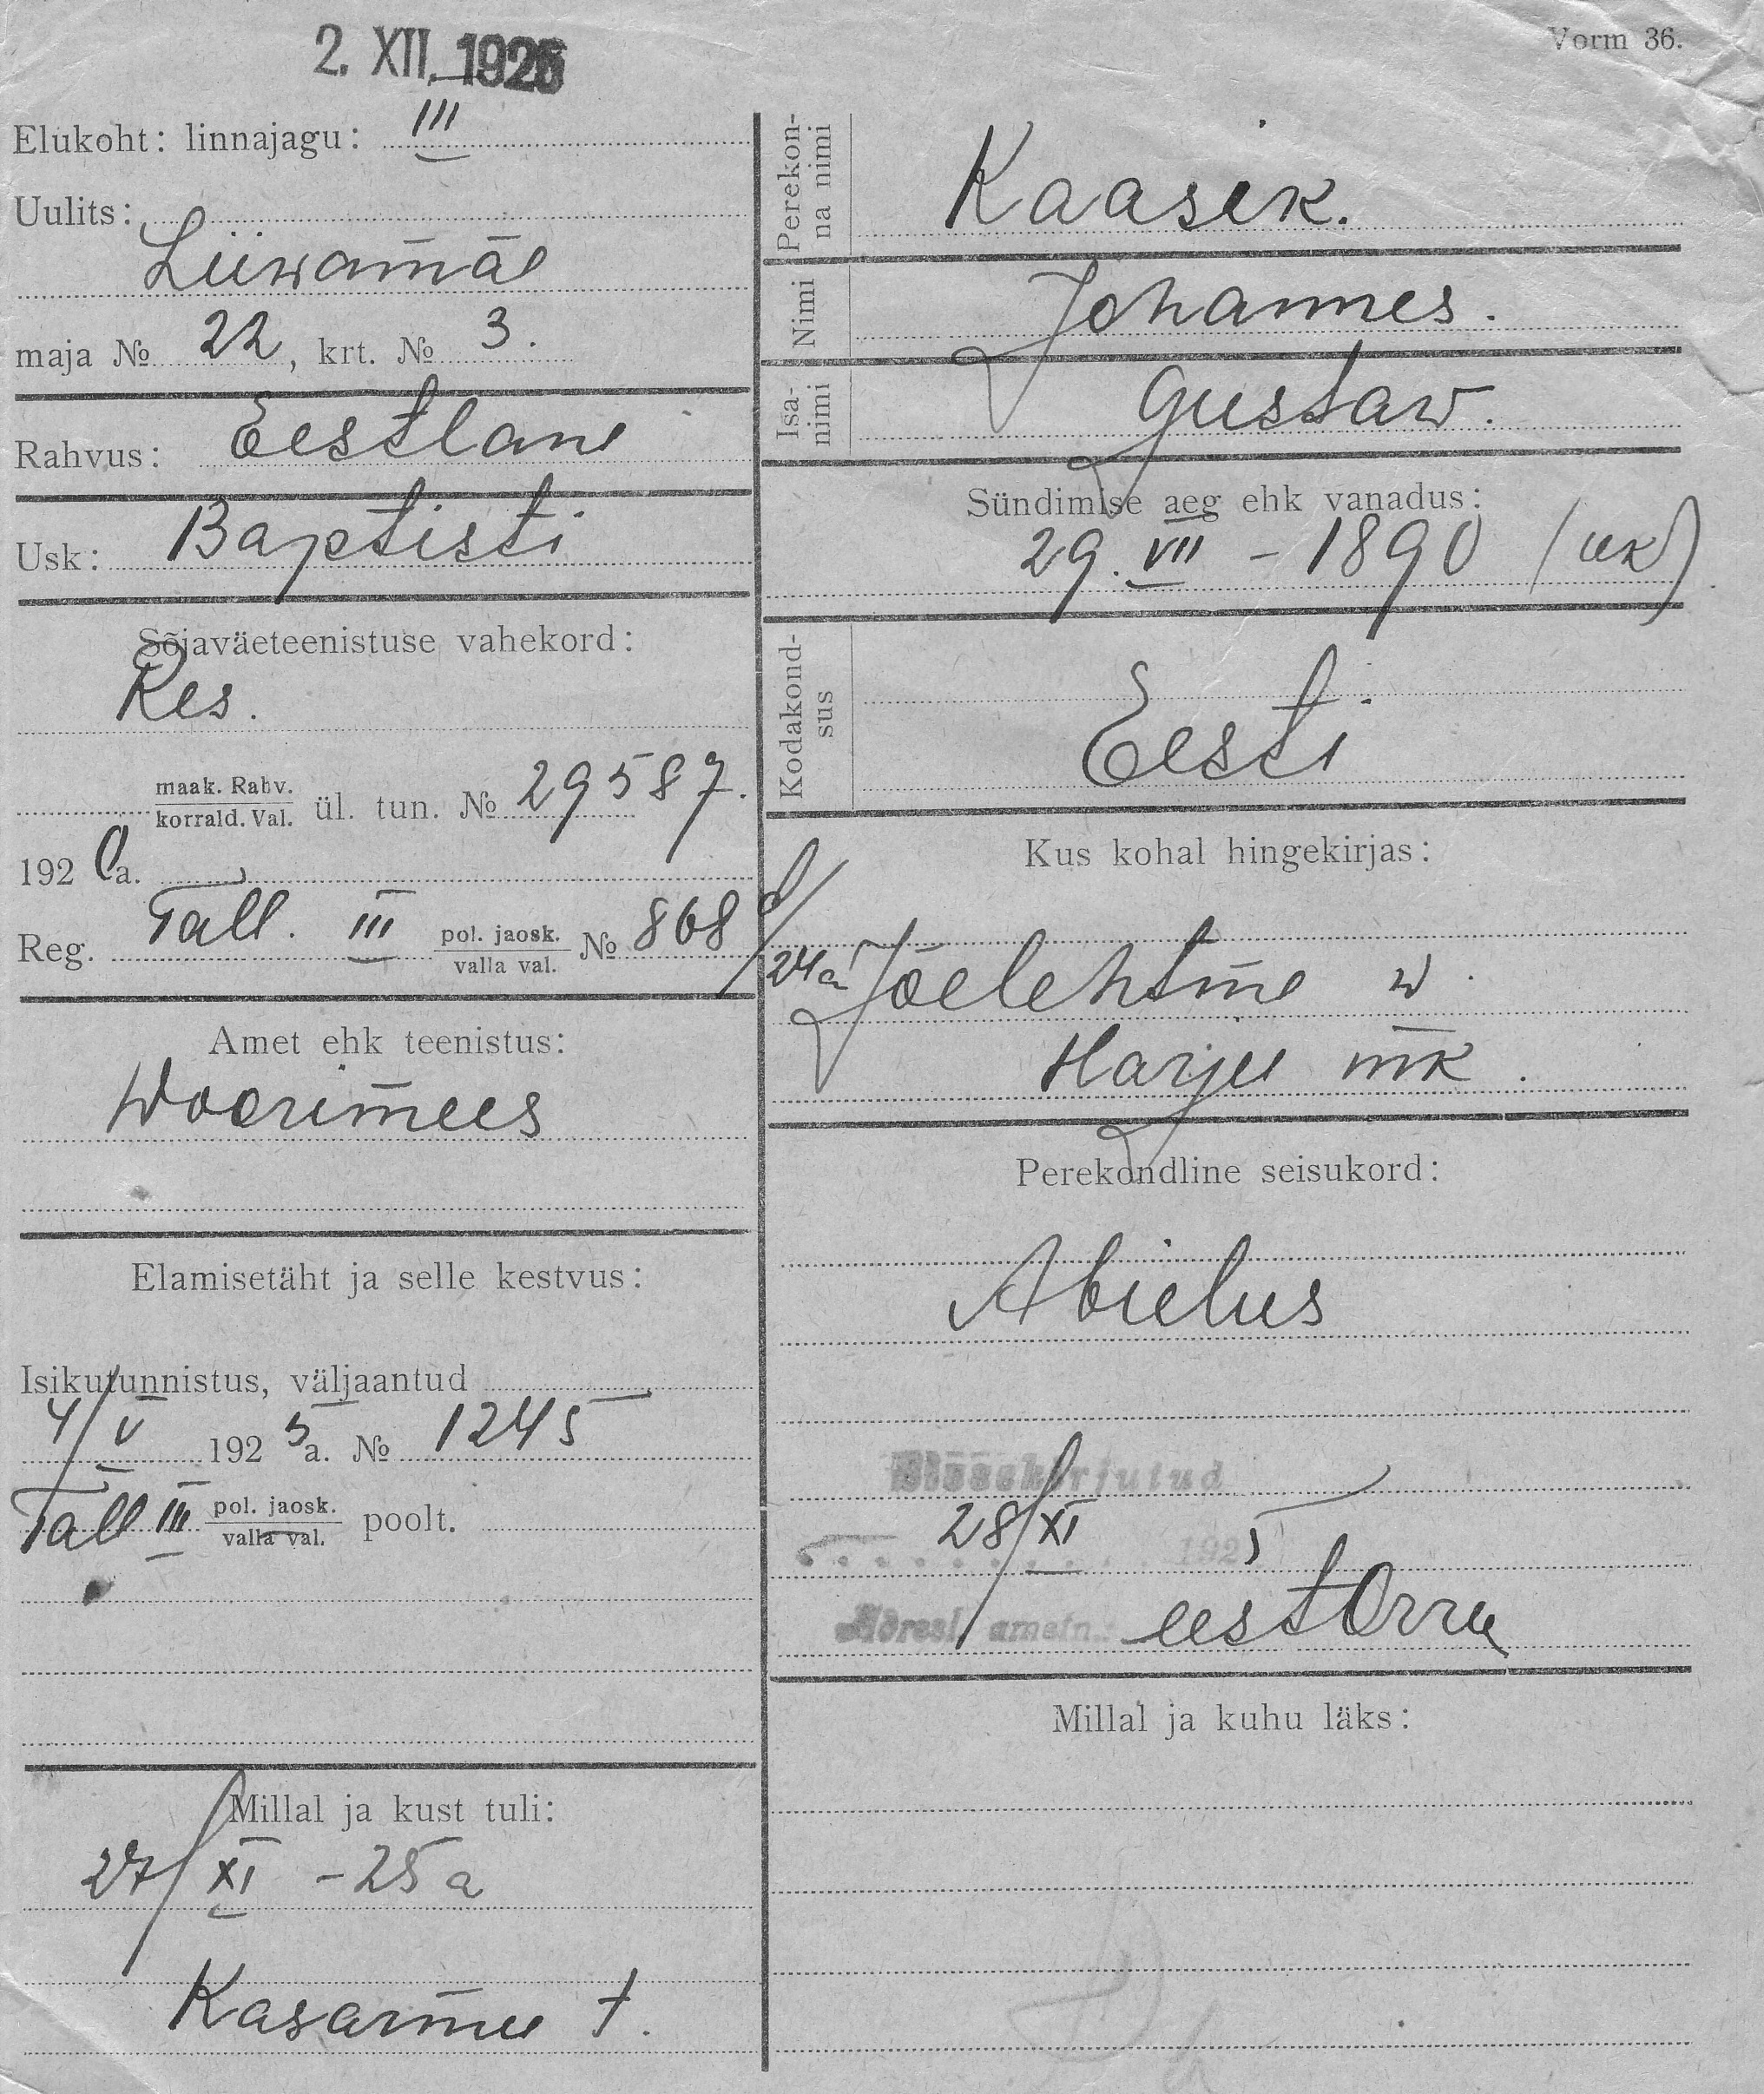 2. XII. 1925
Vorm 36.
Elukoht: linnajagu: III
Uulits:
Liiwamäe
maja № 22, krt. № 3.
Rahvus: Eestlane
Usk: Baptisti
Sõjaväeteenistuse vahekord:
Res.
maak. Rahv.
korrald. Val. ül. tun. № 29587.
1920 a.
Reg. Tall. III pol. jaosk.
valla val. № 868
/24a
Amet ehk teenistus:
Woorimees
Elamisetäht ja selle kestvus:
Isikutunnistus, väljaantud
4/V 1925 a. № 1245
Tall III pol. jaosk.
valla val. poolt.
Millal ja kust tuli:
27/XI - 25 a
Kasarmu t.
Perekon-
na nimi
Kaasik.
Nimi
Johannes.
Isa-
nimi
Gustaw.
Sündimise aeg ehk vanadus:
29. VII - 1890 (uk)
Kodakond-
sus
Eesti
Kus kohal hingekirjas:
Jõelehtme w.
Harju mk.
Perekondline seisukord:
Abielus
Sissekirjutud
28/XI 1925
Adresl. ametn. eest Orru
Millal ja kuhu läks: